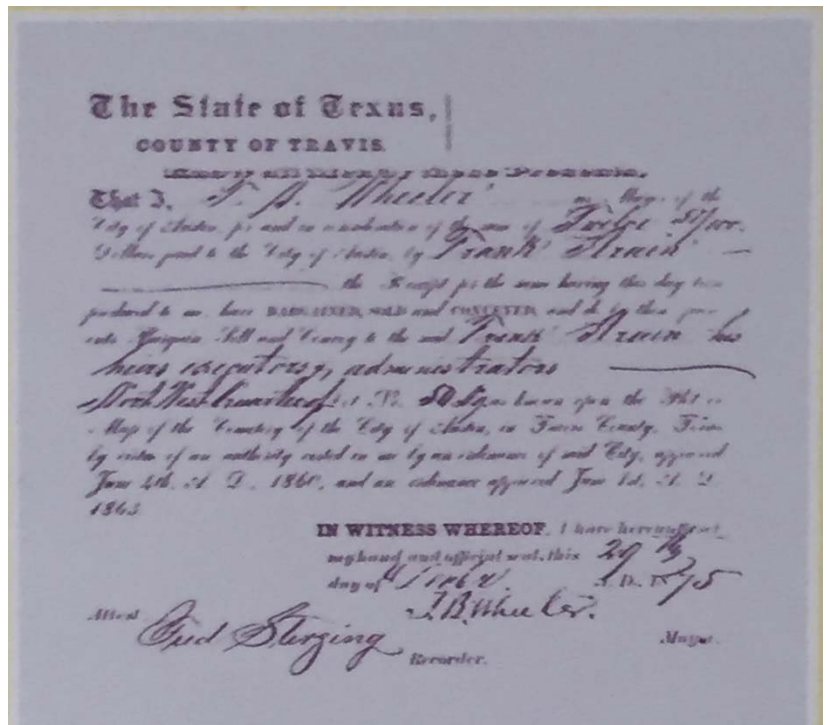 The State of Texas,
COUNTY OF TRAVIS.
Know all Men by these Presents,
That I, T. B. Wheeler as Mayor of the
City of Austin, for and in consideration of the sum of Twelve 50/100
Dollars paid to the City of Austin, by Frank Strain
the Receipt for the same having this day been
produced to me, have BARGAINED, SOLD and CONVEYED, and do by these pres
ents Bargain, Sell and Convey to the said Frank Strain his
heirs executors, administrators
North West Quarter of Lot No. as known upon the Plat or
Map of the Cemetery of the City of Austin, in Travis County, Texas
by virtue of an authority vested in me by an ordinance of said City, approved
June 4th, A. D. 1860, and an ordinance approved June 1st, A. D.
1865
IN WITNESS WHEREOF, I have hereunto set
my hand and official seal, this 29th
day of A. D. 1875
Attest T. B. Wheeler.
Fred Sterzing Mayor.
Recorder.